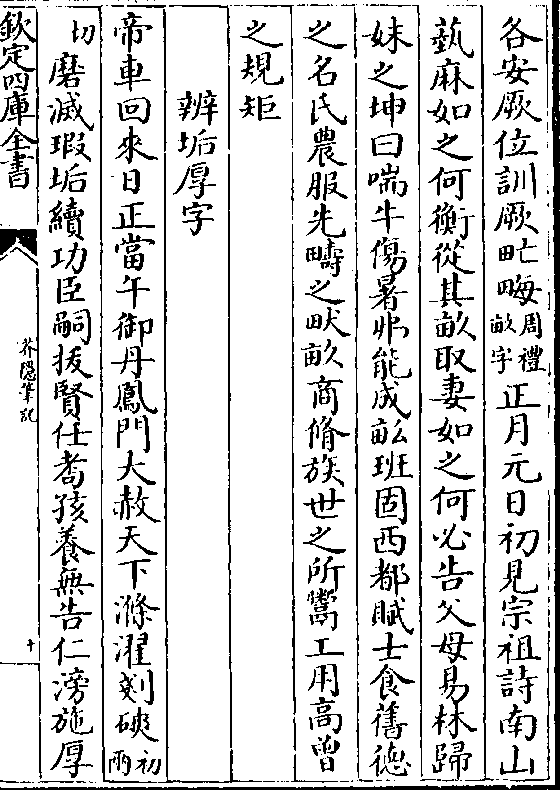 各安厥位訓厥甿畮周禮畝字正月元日初見宗祖詩南山
蓺麻如之何衡從其畝取妻如之何必告父母易林歸
妹之坤曰喘牛傷暑弗能成畝班固西都賦士食舊德
之名氏農服先疇之畎畝商脩族世之所鬻工用高曾
之規矩
辨垢厚字
帝車回來日正當午御丹鳳門大赦天下滌濯剗磢初兩
切磨滅瑕垢續功臣嗣拔賢任耉孩養無告仁滂施厚
欽定四庫全書
芥隱筆記
十